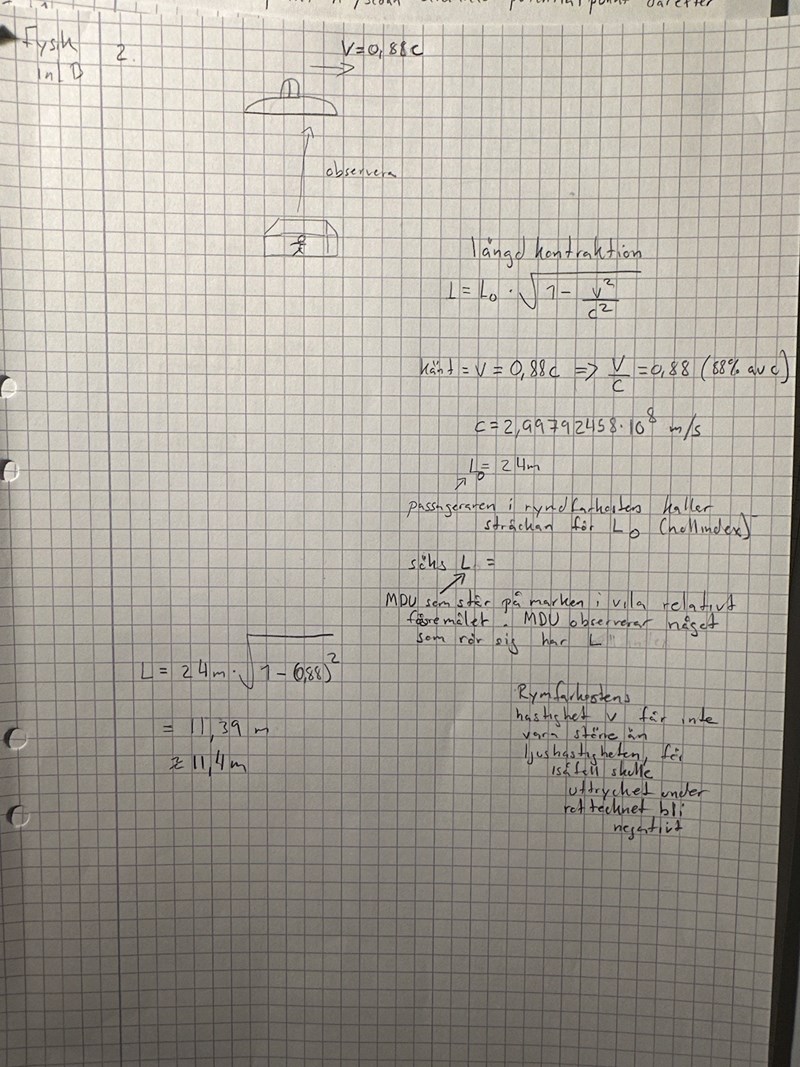 Fysik
inl D
2.
V=0,88c
observera
längd kontraktion
L = L₀ · √(1 - v²/c²)
känt = V = 0,88c => V/C = 0,88 (88% av c)
c = 2,99792458·10⁸ m/s
L₀ = 24m
passageraren i rymdfarkostens kallar
sträckan för L₀ (nollindex)
söks L =
MDU som står på marken i vila relativt
föremålet. MDU observerar något
som rör sig har L
L = 24m · √(1-(0,88)²
= 11,39 m
≈ 11,4m
Rymfarkostens
hastighet v får inte
vara större än
ljushastigheten, för
isåfall skulle
uttrycket under
rottecknet bli
negativt